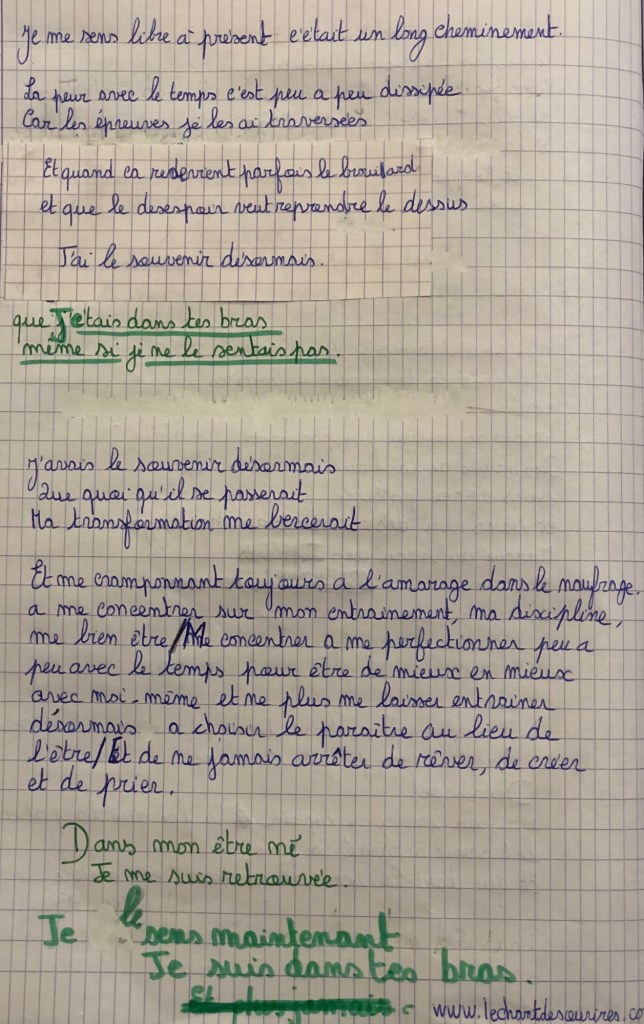 Je me sens libre a présent c'était un long cheminement.
La peur avec le temps c'est peu a peu dissipée
Car les épreuves je les ai traversées
Et quand ca redevient parfois le brouillard
et que le desespoir veut reprendre le dessus
J'ai le souvenir désormais.
que J'étais dans tes bras
même si je ne le sentais pas.
J'avais le souvenir désormais
Que quoi qu'il se passerait
Ma transformation me bercerait
Et me cramponnant toujours a l'amarage dans le naufrage.
a me concentrer sur mon entrainement, ma discipline,
me bien être/Me concentrer a me perfectionner peu a
peu avec le temps pour être de mieux en mieux
avec moi-même et ne plus me laisser entrainer
désormais a choisir le paraître au lieu de
l'être/Et de ne jamais arrêter de rêver, de créer
et de prier.
Dans mon être né
Je me suis retrouvée.
Je le sens maintenant
Je suis dans tes bras.
Et plus jamais